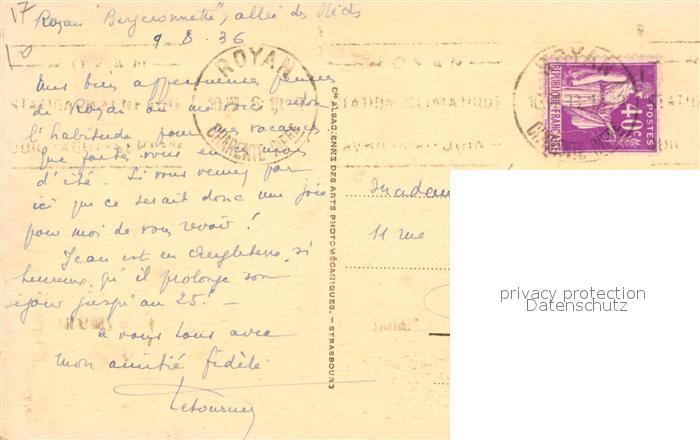 17
Royan "Bergeronnette", allée des Nids
9.8.36
Mes bien affectueuses pensées
de Royan où me voici, selon
l'habitude, pour mes vacances
Que faites-vous en ces mois
d'été. Si vous veniez par
ici que ce serait donc une joie
pour moi de vous revoir !
Jean est en Angleterre, si
heureux qu'il prolonge son
séjour jusqu'au 25! —
à vous tous avec
mon amitié fidèle
ROYAN
CHARENTE-INFRE
Cie ALSACIENNE DES ARTS PHOTOMÉCANIQUES. — STRASBOURG
ROYAN
STATION CLIMATIQUE
40c
POSTES
REPUBLIQUE-FRANÇAISE
Madame
11 rue
privacy protection
Datenschutz